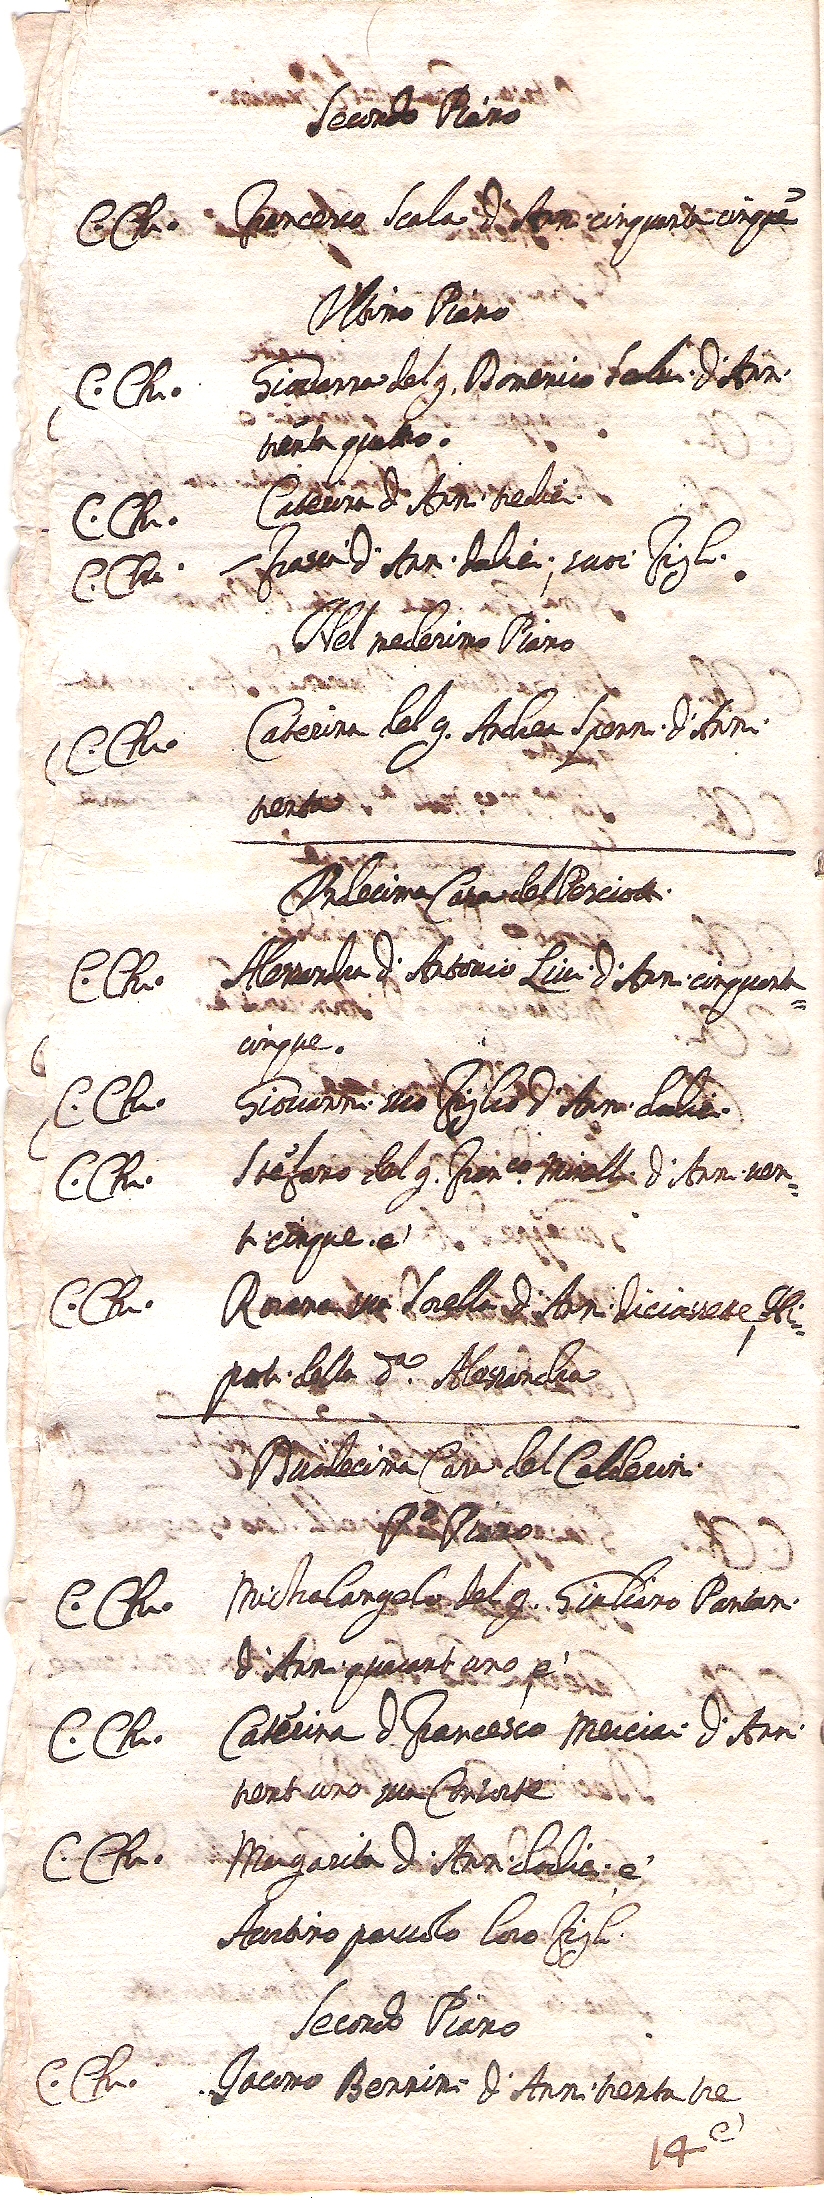 Secondo Piano
C. Ch. Francesco Scala d'Anni cinquanta cinque
Ultimo Piano
C. Ch. Giovanna del q. Domenico Scala d'Anni
trenta quattro.
C. Ch. Caterina d'Anni tredici
C. Ch. d'Anni dodici, suoi figli.
Nel medesimo Piano
C. Ch. Caterina del q. Andrea d'Anni
trenta
Undecima Casa del
C. Ch. Alessandra di Antonio d'Anni cinquanta=
cinque.
C. Ch. Giovanni suo figlio d'Anni dodici.
C. Ch. Stefano del q. Fran.co d'Anni ven=
ticinque. e
C. Ch. Rosana sua Sorella d'Anni diciassette, Ni=
poti della d.a Alessandra
Duodecima Casa del Calderini
P.o Piano
C. Ch. Michelangelo del q. Giuliano
d'Anni quarant'uno, e
C. Ch. Caterina di Francesco d'Anni
trent'uno sua Consorte
C. Ch. Margarita d'Anni dodici. e
piccolo loro figli.
Secondo Piano
C. Ch. Jacomo Bernini d'Anni trenta tre
e
14